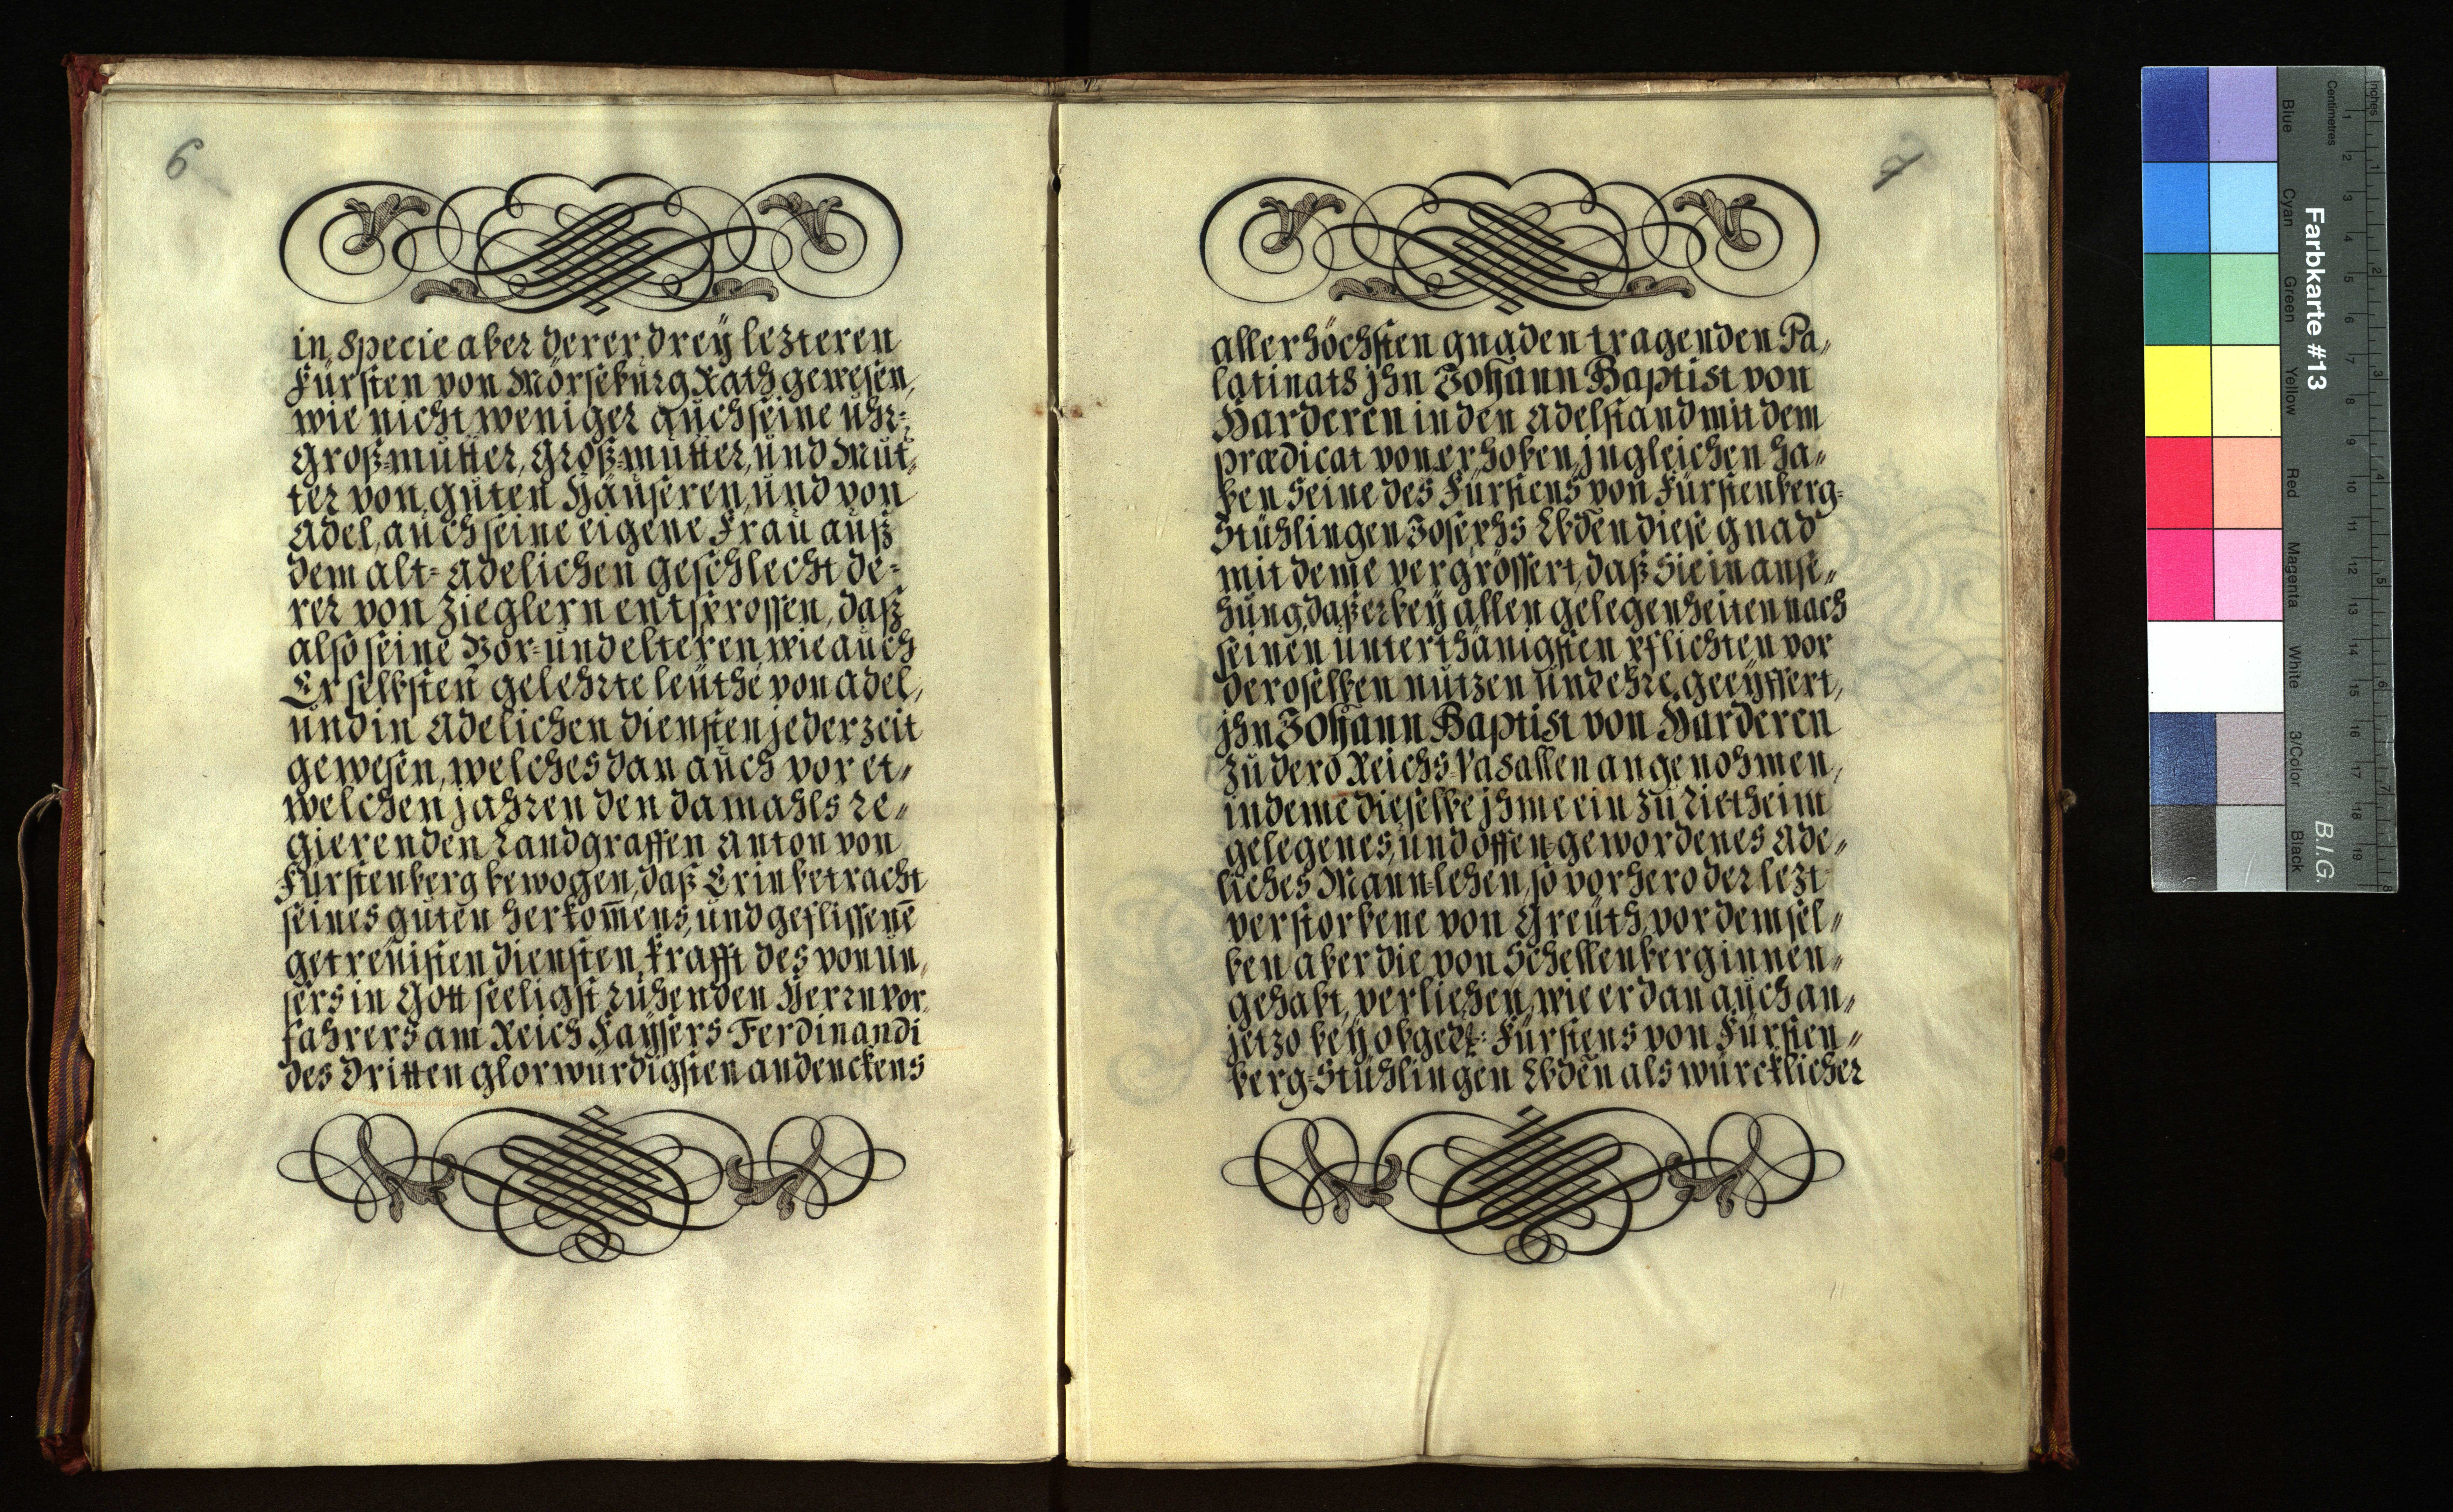 6
in specie aber derer drey lezteren
Fürsten von Mörseburg Rath gewesen,
wie nicht weniger auch seine uhr-
großmutter, großmutter, und Mut-
ter von guten Häuseren, und von
Adel, auch seine eigene Frau auß
dem alt-adelichen geschlecht de-
rer von Zieglern entsprossen, daß
also seine Vor- und elteren, wie auch
Er selbsten gelehrte leuthe von adel,
und in adelichen diensten jederzeit
gewesen, welches dan auch vor et-
welchen jahren den damahls re-
gierenden Landgraffen Anton von
Fürstenberg bewogen, daß Er in betracht
seines guten herkom̄ens, und geflissenē
getreuisten diensten, krafft des von un-
sers in Gott seeligst ruhenden Herrn vor-
fahrers am Reich Kaysers Ferdinandi
des dritten glorwürdigsten andenckens
7
allerhöchsten gnaden tragenden Pa-
latinats jhn Johann Baptist von
Harderen in den adelstand mit dem
prædicat von erhoben, jngleichen ha-
ben seine des Fürstens von Fürstenberg-
Stühlingen Josephs Lbden diese gnad
mit deme vergrössert, daß Sie in anse-
hung, daß er bey allen gelegenheiten nach
seinen unterthänigsten pflichten vor
deroselben nutzen und ehre geeyffert,
jhn Johann Baptist von Harderen
zu dero Reichs-Vasallen angenohmen,
indeme dieselbe jhme ein zu Rietheim
gelegenes, und offen-gewordenes Ade-
liches Mann-lehen, so vorhero der lezt
verstorbene von Greuth, vor demsel-
ben aber die von Schellenberg innen-
gehabt, verliehen, wie er dan auch an-
jetzo bey obgedt: Fürstens von Fürsten-
berg-Stühlingen Lbden als würcklicher
Farbkarte #13
B.I.G.
Inches
Centimetres
Blue
Cyan
Green
Yellow
Red
Magenta
White
3/Color
Black